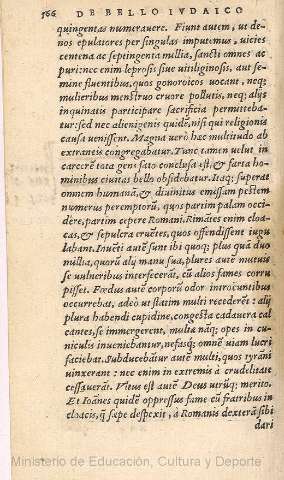 566 DE BELLO IVDAICO
quingentas numerauere. Fiunt autem, ut de-
nos epulatores per singulas imputemus, uicies
centena ac septingenta millia, sancti omnes ac
puri: nec enim leprosis siue uitiliginosis, aut se-
mine fluentibus, quos gonoroicos uocant, neq;
mulieribus menstruo cruore pollutis, neq; alijs
inquinatis participare sacrificia permittеba-
tur: sed nec alienigenis quidē, nisi qui religionis
causa uenissent. Magna uerò hæc multitudo ab
extraneis congregabatur. Tunc tamen uelut in
carcerē tota gens fato conclusa est, & farta ho-
minibus ciuitas bello obsidebatur. Itaq; superat
omnem humanā, & diuinitus emissam pestem
numerus peremptorū, quos partim palam occi-
dere, partim cepere Romani. Rimātes enim cloa-
cas, & sepulcra eruētes, quos offendissent iugu
labant. Inuēti autē sunt ibi quoq; plus quā duo
millia, quorū alij manu sua, plures autē mutuis
se uulneribus interfecerāt, cū alios fames corru
pisset. Fœdus autē corporū odor introeuntibus
occurrebat, adeò ut statim multi recederēt: alij
plura habendi cupidine, congesta cadauera cal
cantes, se immergerent, multæ nāq; opes in cu-
niculis inueniebantur, nefasq; omnē uiam lucri
faciebat. Subducebātur autē multi, quos tyrāni
uinxerant: nec enim in extremis à crudelitate
cessauerāt. Vltus est autē Deus utrūq; merito.
Et Ioānes quidē oppressus fame cū fratribus in
cloacis, q̄ sæpe despexit, à Romanis dexterā sibi
dari
Ministerio de Educación, Cultura y Deporte